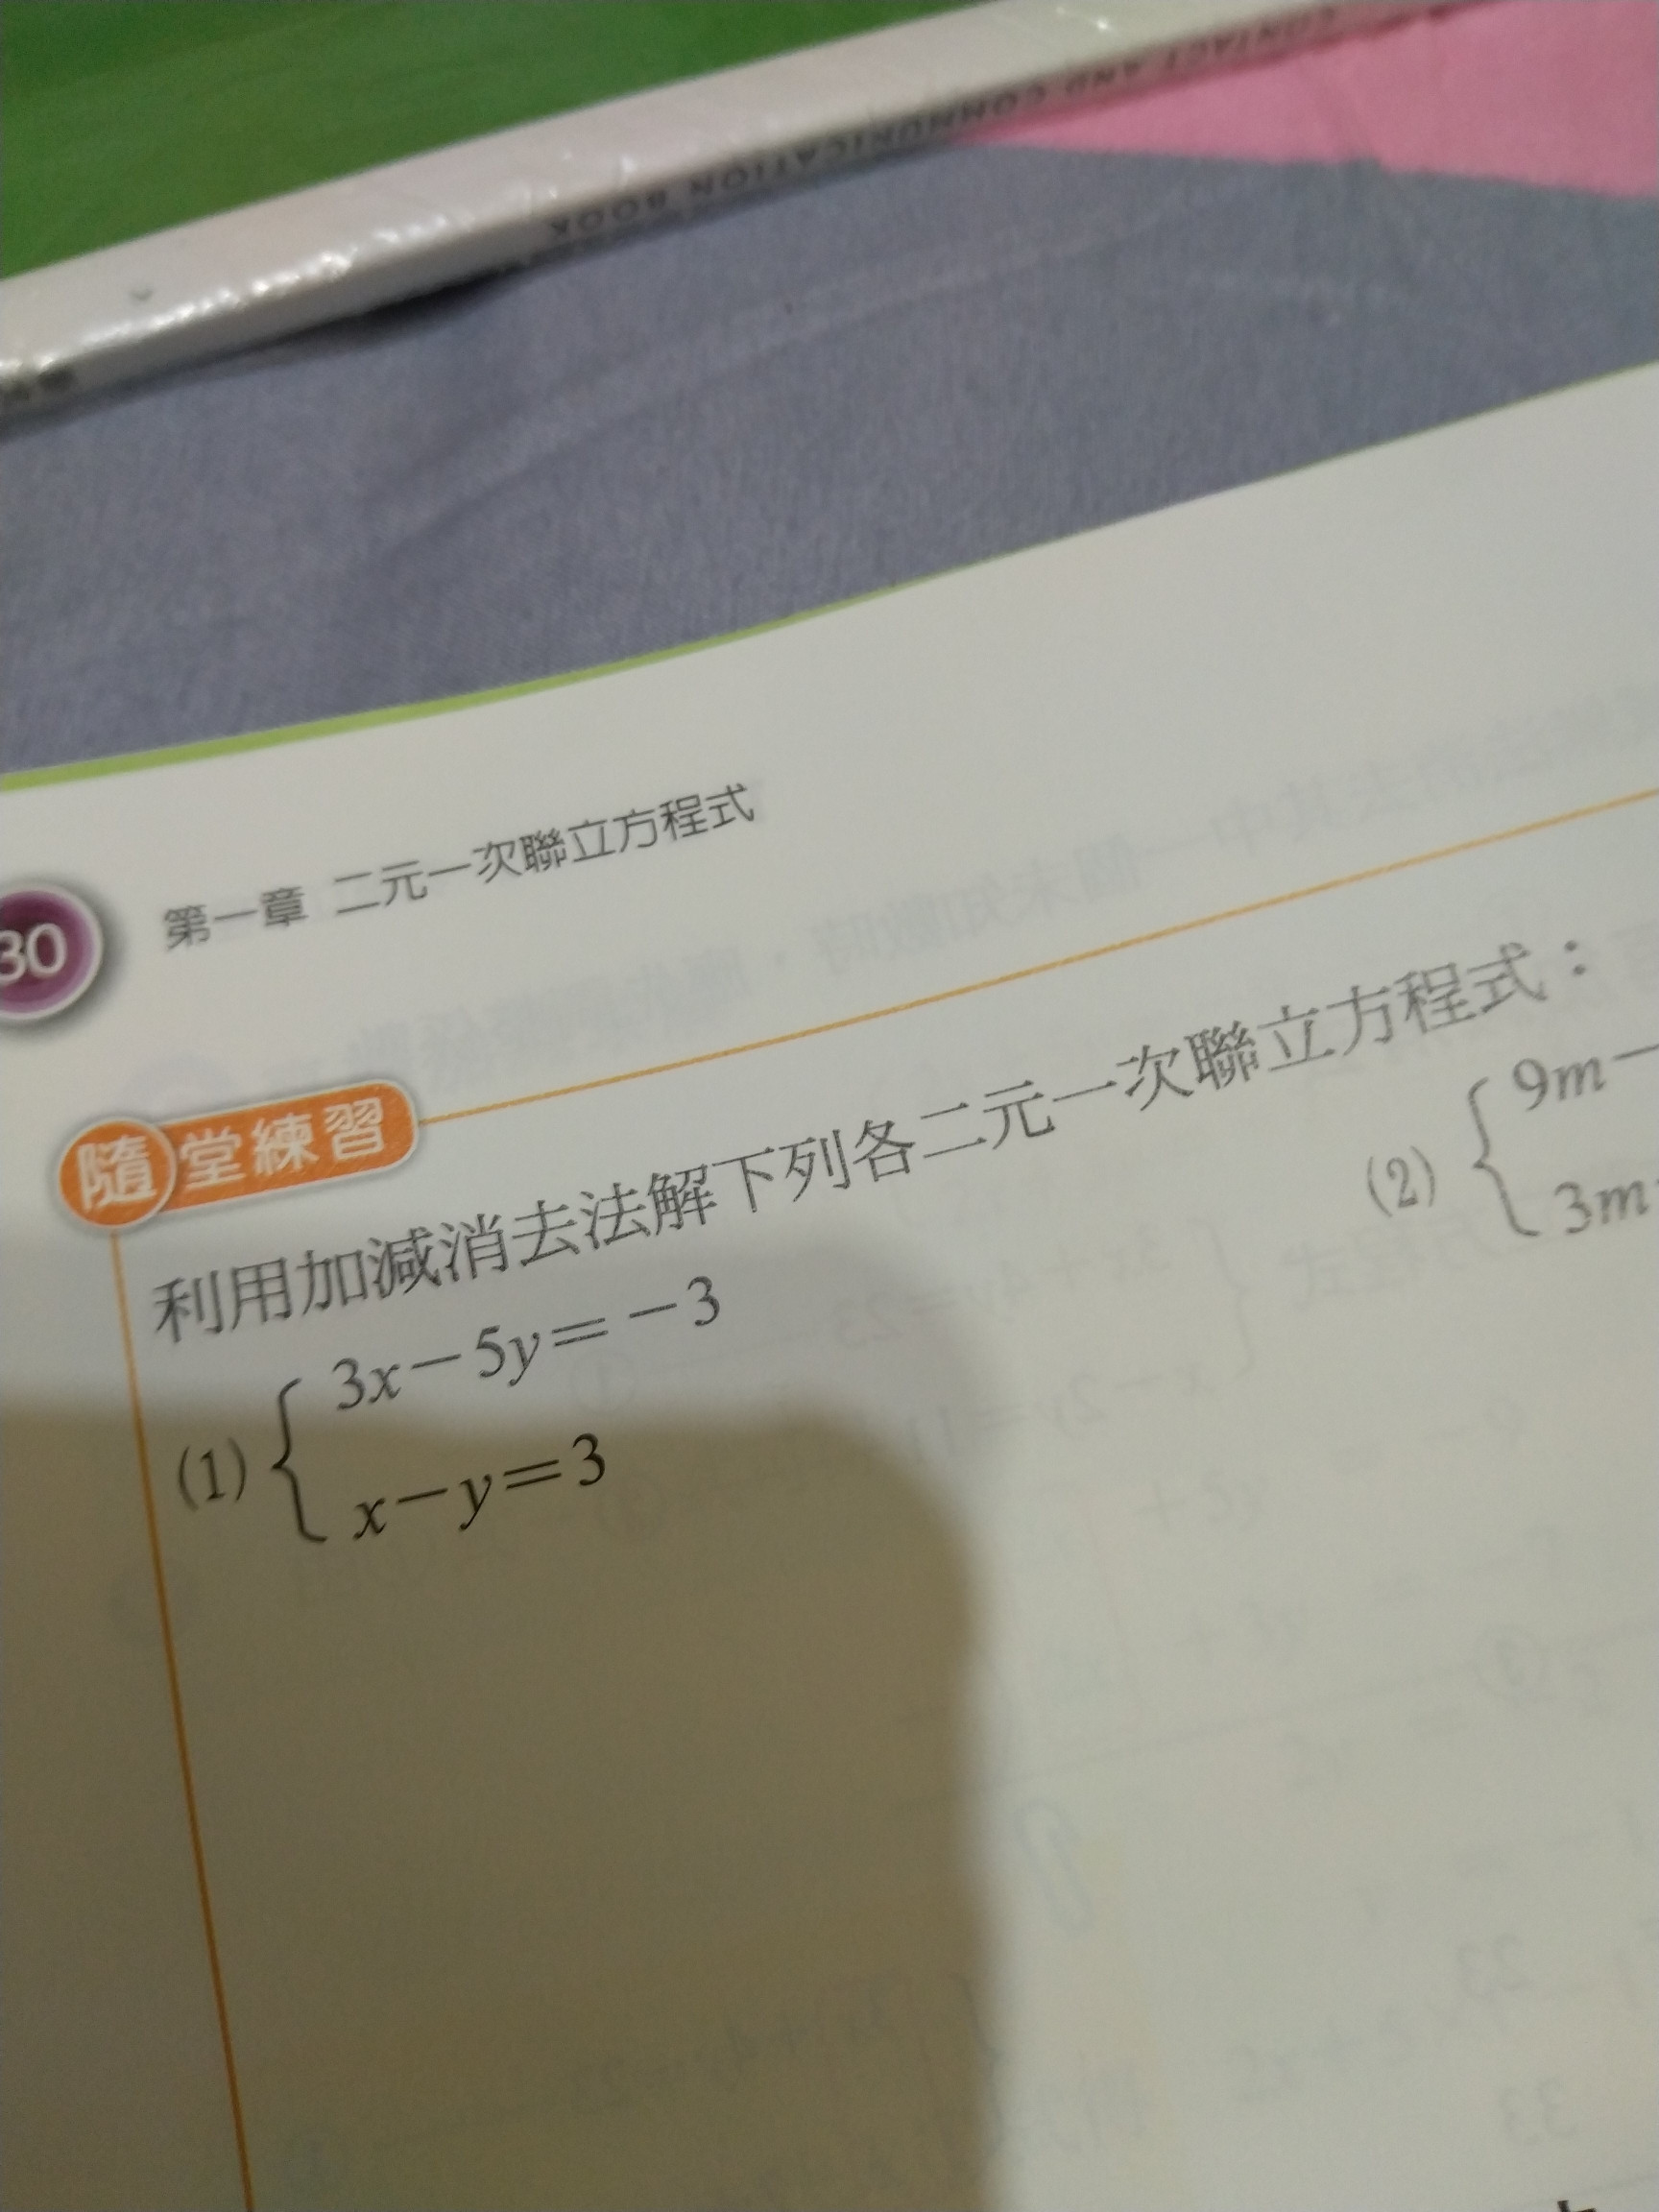 CONTACT AND COMMUNICATION BOOK
30 第一章 二元一次聯立方程式
隨堂練習
利用加減消去法解下列各二元一次聯立方程式：
(1) { 3x－5y＝－3
x－y＝3
(2) { 9m－
3m